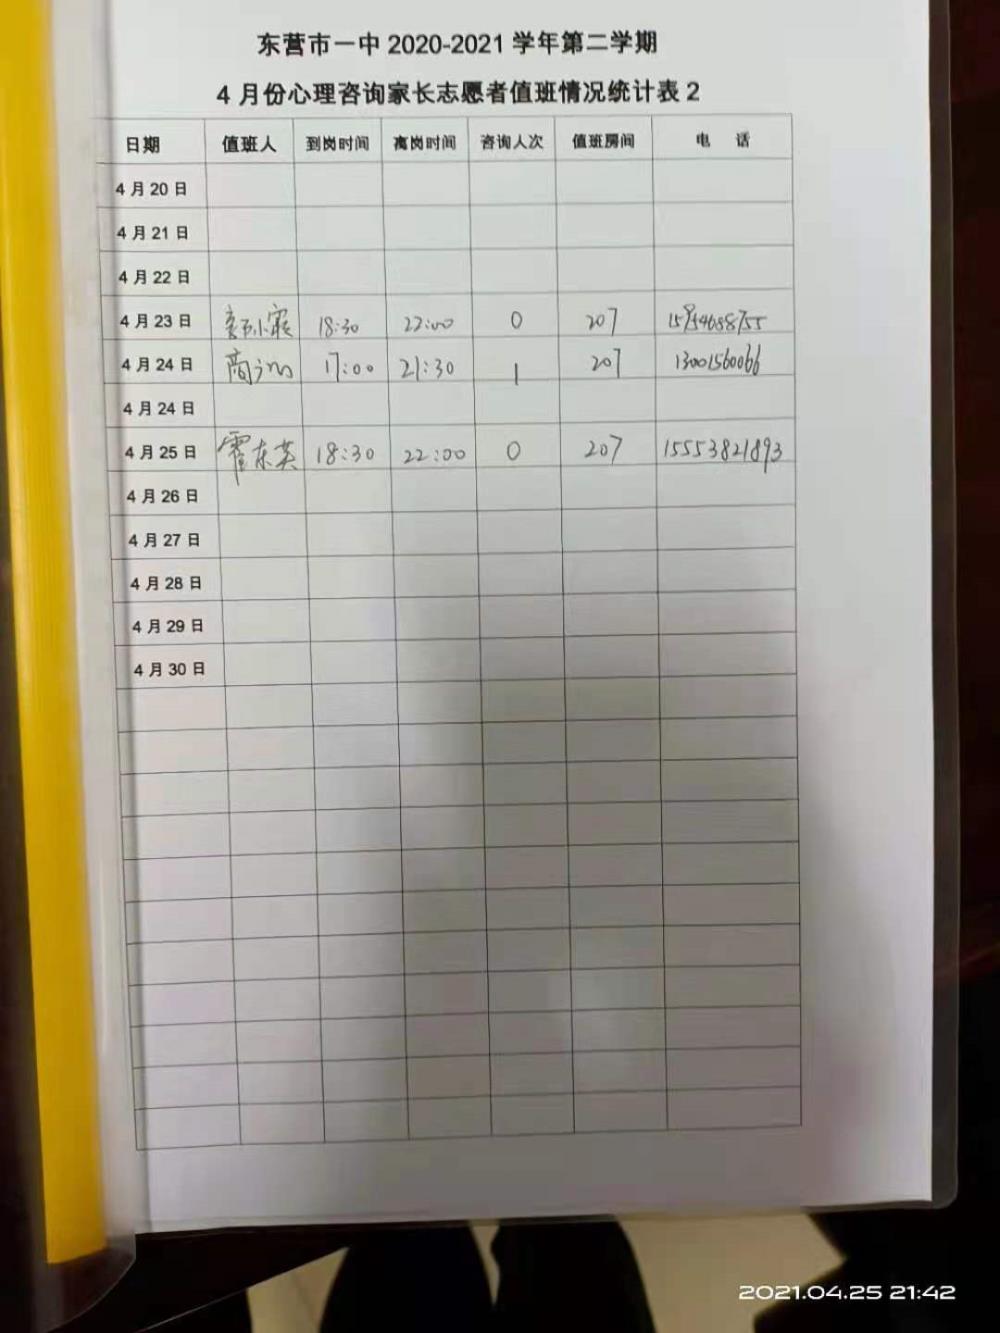 东营市一中 2020-2021 学年第二学期
4 月份心理咨询家长志愿者值班情况统计表 2
日期 值班人 到岗时间 离岗时间 咨询人次 值班房间 电 话
4 月 20 日
4 月 21 日
4 月 22 日
4 月 23 日 18:30 22:00 0 207
4 月 24 日 17:00 21:30 1 207 13001560066
4 月 24 日
4 月 25 日 霍东英 18:30 22:00 0 207 15553821893
4 月 26 日
4 月 27 日
4 月 28 日
4 月 29 日
4 月 30 日
2021.04.25 21:42